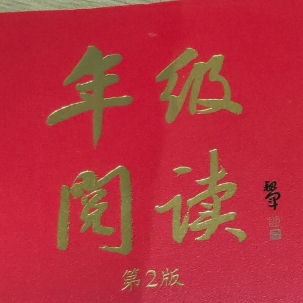 年级
阅读
第2版